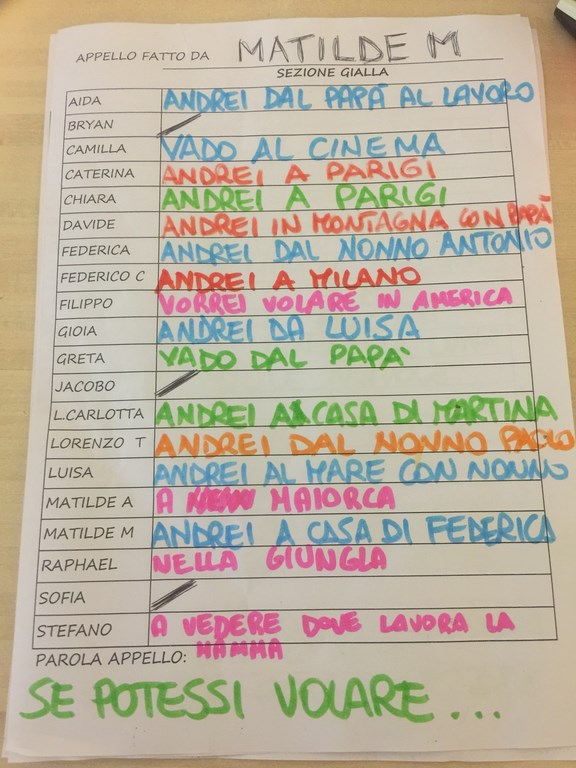 APPELLO FATTO DA MATILDE M
SEZIONE GIALLA
AIDA ANDREI DAL PAPÀ AL LAVORO
BRYAN
CAMILLA VADO AL CINEMA
CATERINA ANDREI A PARIGI
CHIARA ANDREI A PARIGI
DAVIDE ANDREI IN MONTAGNA CON PAPÀ
FEDERICA ANDREI DAL NONNO ANTONIO
FEDERICO C ANDREI A MILANO
FILIPPO VORREI VOLARE IN AMERICA
GIOIA ANDREI DA LUISA
GRETA VADO DAL PAPA'
JACOBO
L.CARLOTTA ANDREI A CASA DI MARTINA
LORENZO T ANDREI DAL NONNO PAOLO
LUISA ANDREI AL MARE CON NONNO
MATILDE A A MAIORCA
MATILDE M ANDREI A CASA DI FEDERICA
RAPHAEL NELLA GIUNGLA
SOFIA
STEFANO A VEDERE DOVE LAVORA LA
MAMMA
PAROLA APPELLO:
SE POTESSI VOLARE...